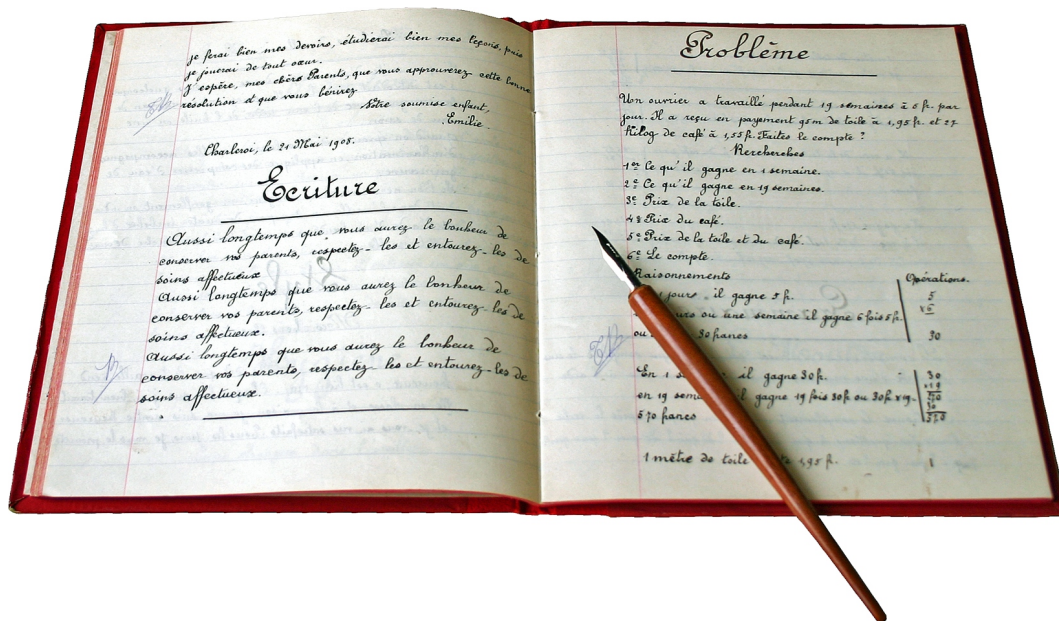 je ferai bien mes devoirs, étudierai bien mes leçons, puis
je jouerai de tout cœur.
J'espère, mes chers Parents, que vous approuverez cette bonne
résolution et que vous bénirez
Votre soumise enfant,
Emilie.
Charleroi, le 21 Mai 1908.
Ecriture
Aussi longtemps que vous aurez le bonheur de
conserver vos parents, respectez-les et entourez-les de
soins affectueux
Aussi longtemps que vous aurez le bonheur de
conserver vos parents, respectez-les et entourez-les de
soins affectueux.
Aussi longtemps que vous aurez le bonheur de
conserver vos parents, respectez-les et entourez-les de
soins affectueux.
Problème
Un ouvrier a travaillé pendant 19 semaines à 5 fr. par
jour. Il a reçu en payement 95m de toile à 1,95 fr. et 27
Kilog de café à 1,55 fr. Faites le compte ?
Recherches
1er Ce qu'il gagne en 1 semaine.
2e Ce qu'il gagne en 19 semaines.
3e Prix de la toile.
4e Prix du café.
5e Prix de la toile et du café.
6e Le compte.
Raisonnements Opérations.
1 jour il gagne 5 fr. 5
ou une semaine il gagne 6 fois 5 fr. x6
ou 30 francs 30
En 1 il gagne 30 fr. 30
en 19 il gagne 19 fois 30 fr. ou 30 fr. x 19 x19
570 francs 270
30
570
1 mètre de toile 1,95 fr. 1